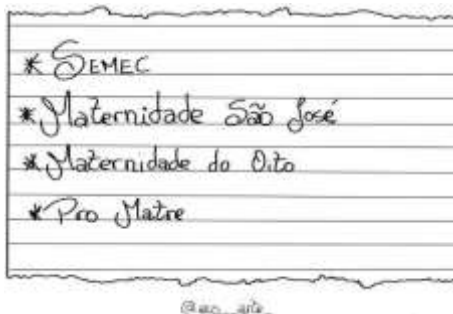 * SEMEC
* Maternidade São José
* Maternidade do Oito
* Pro Matre